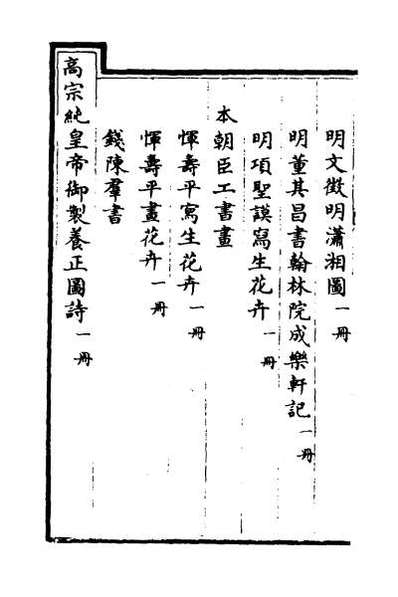 明文徵明瀟湘圖一冊
明董其昌書翰林院成樂軒記一冊
明項聖謨寫生花卉一冊
本朝臣工書畫
惲壽平寫生花卉一冊
惲壽平畫花卉一冊
錢陳羣書
高宗純皇帝御製養正圖詩一冊